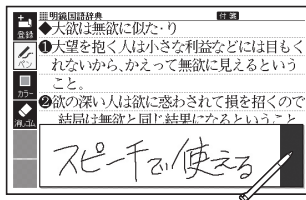 登録
ペン
カラー
消しゴム
明鏡国語辞典 付箋
◆大欲は無欲に似た・り
❶大望を抱く人は小さな利益などには目もく
れないから、かえって無欲に見えるという
こと。
❷欲の深い人は欲に惑わされて損を招くので
結局は無欲と同じ結果になるということ
スピーチで使える